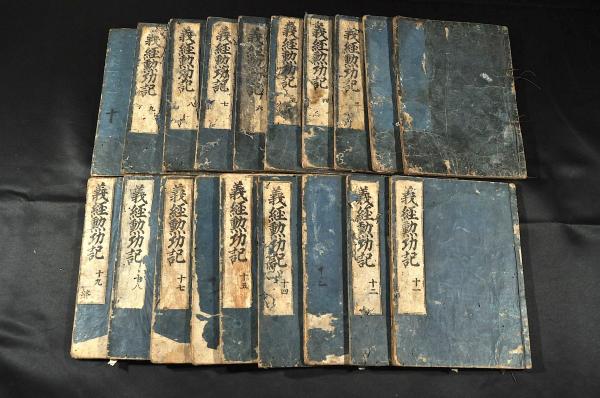 義經勲功記 三
義經勲功記 四
義經勲功記
義經勲功記 六
義經勲功記 七
義經勲功記 八
義經勲功記 九
十
義經勲功記 十一
義經勲功記 十二
義經勲功記 十四
義經勲功記 十五
義經勲功記 十七
義經勲功記 十八
義經勲功記 十九 終